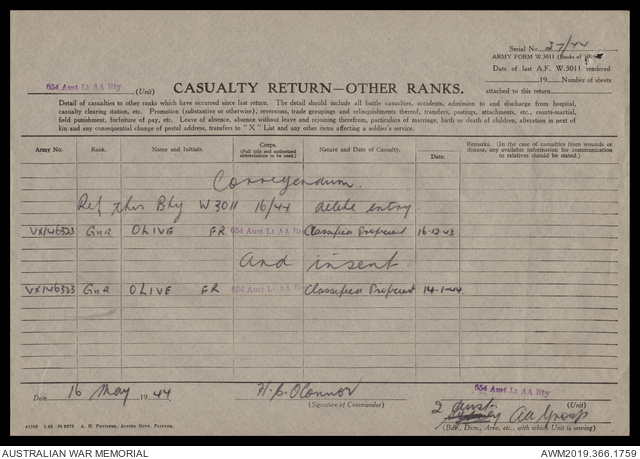 Serial No. 27/44
ARMY FORM W.3011 (Books of
Date of last A.F. W.3011 rendered
19 Number of sheets
attached to this return
654 Aust Lt AA Bty (Unit)
CASUALTY RETURN—OTHER RANKS.
Detail of casualties to other ranks which have occurred since last return. The detail should include all battle casualties, accidents, admission to and discharge from hospital,
casualty clearing station, etc. Promotion (substantive or otherwise), reversions, trade groupings and relinquishments thereof, transfers, postings, attachments, etc., courts-martial,
field punishment, forfeiture of pay, etc. Leave of absence, absence without leave and rejoining therefrom, particulars of marriage, birth or death of children, alteration in next of
kin and any consequential change of postal address, transfers to "X" List and any other items affecting a soldier's service.
Army No. Rank. Name and Initials. Corps. (Full title and authorized abbreviation to be used.) Nature and Date of Casualty. Date. Remarks. (In the case of casualties from wounds or disease, any available information for communication to relatives should be stated.)
Corrigendum.
Ref this Bty W3011 16/44 delete entry.
VX146323 Gnr OLIVE FR 654 Aust Lt AA Bty Classified Proficient 16-12-43
And insert
VX146323 Gnr OLIVE FR 654 Aust Lt AA Bty Classified Proficient 14-1-44
Date 16 May 1944 H.C. O'Connor 654 Aust Lt AA Bty
(Signature of Commander) (Unit)
2 Aust AA Group
(Bde., Divn., Area, etc., with which Unit is serving)
A. H. PETTIFER, ACTING GOVT. PRINTER.
AUSTRALIAN WAR MEMORIAL AWM2019.366.1759